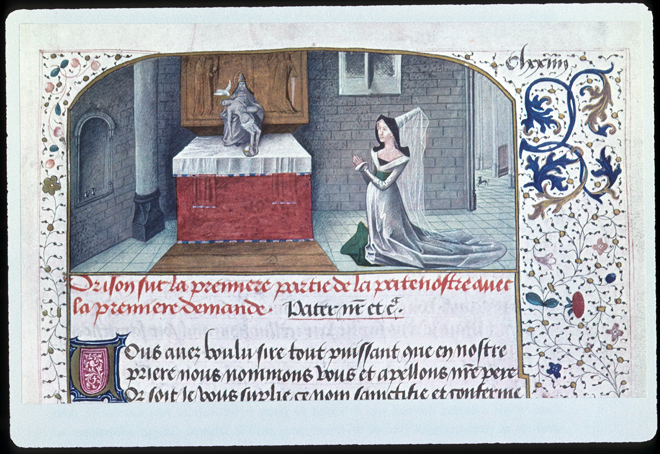 Orison sur la premiere partie de la patenostre avec
la premiere demande. Pater nr̄ et cͣ.
Vous avez voulu sire tout puissant que en nostre
priere nous nommons vous et apellons nr̄e pere
Or soit je vous suplie ce nom sainctifie et conferme